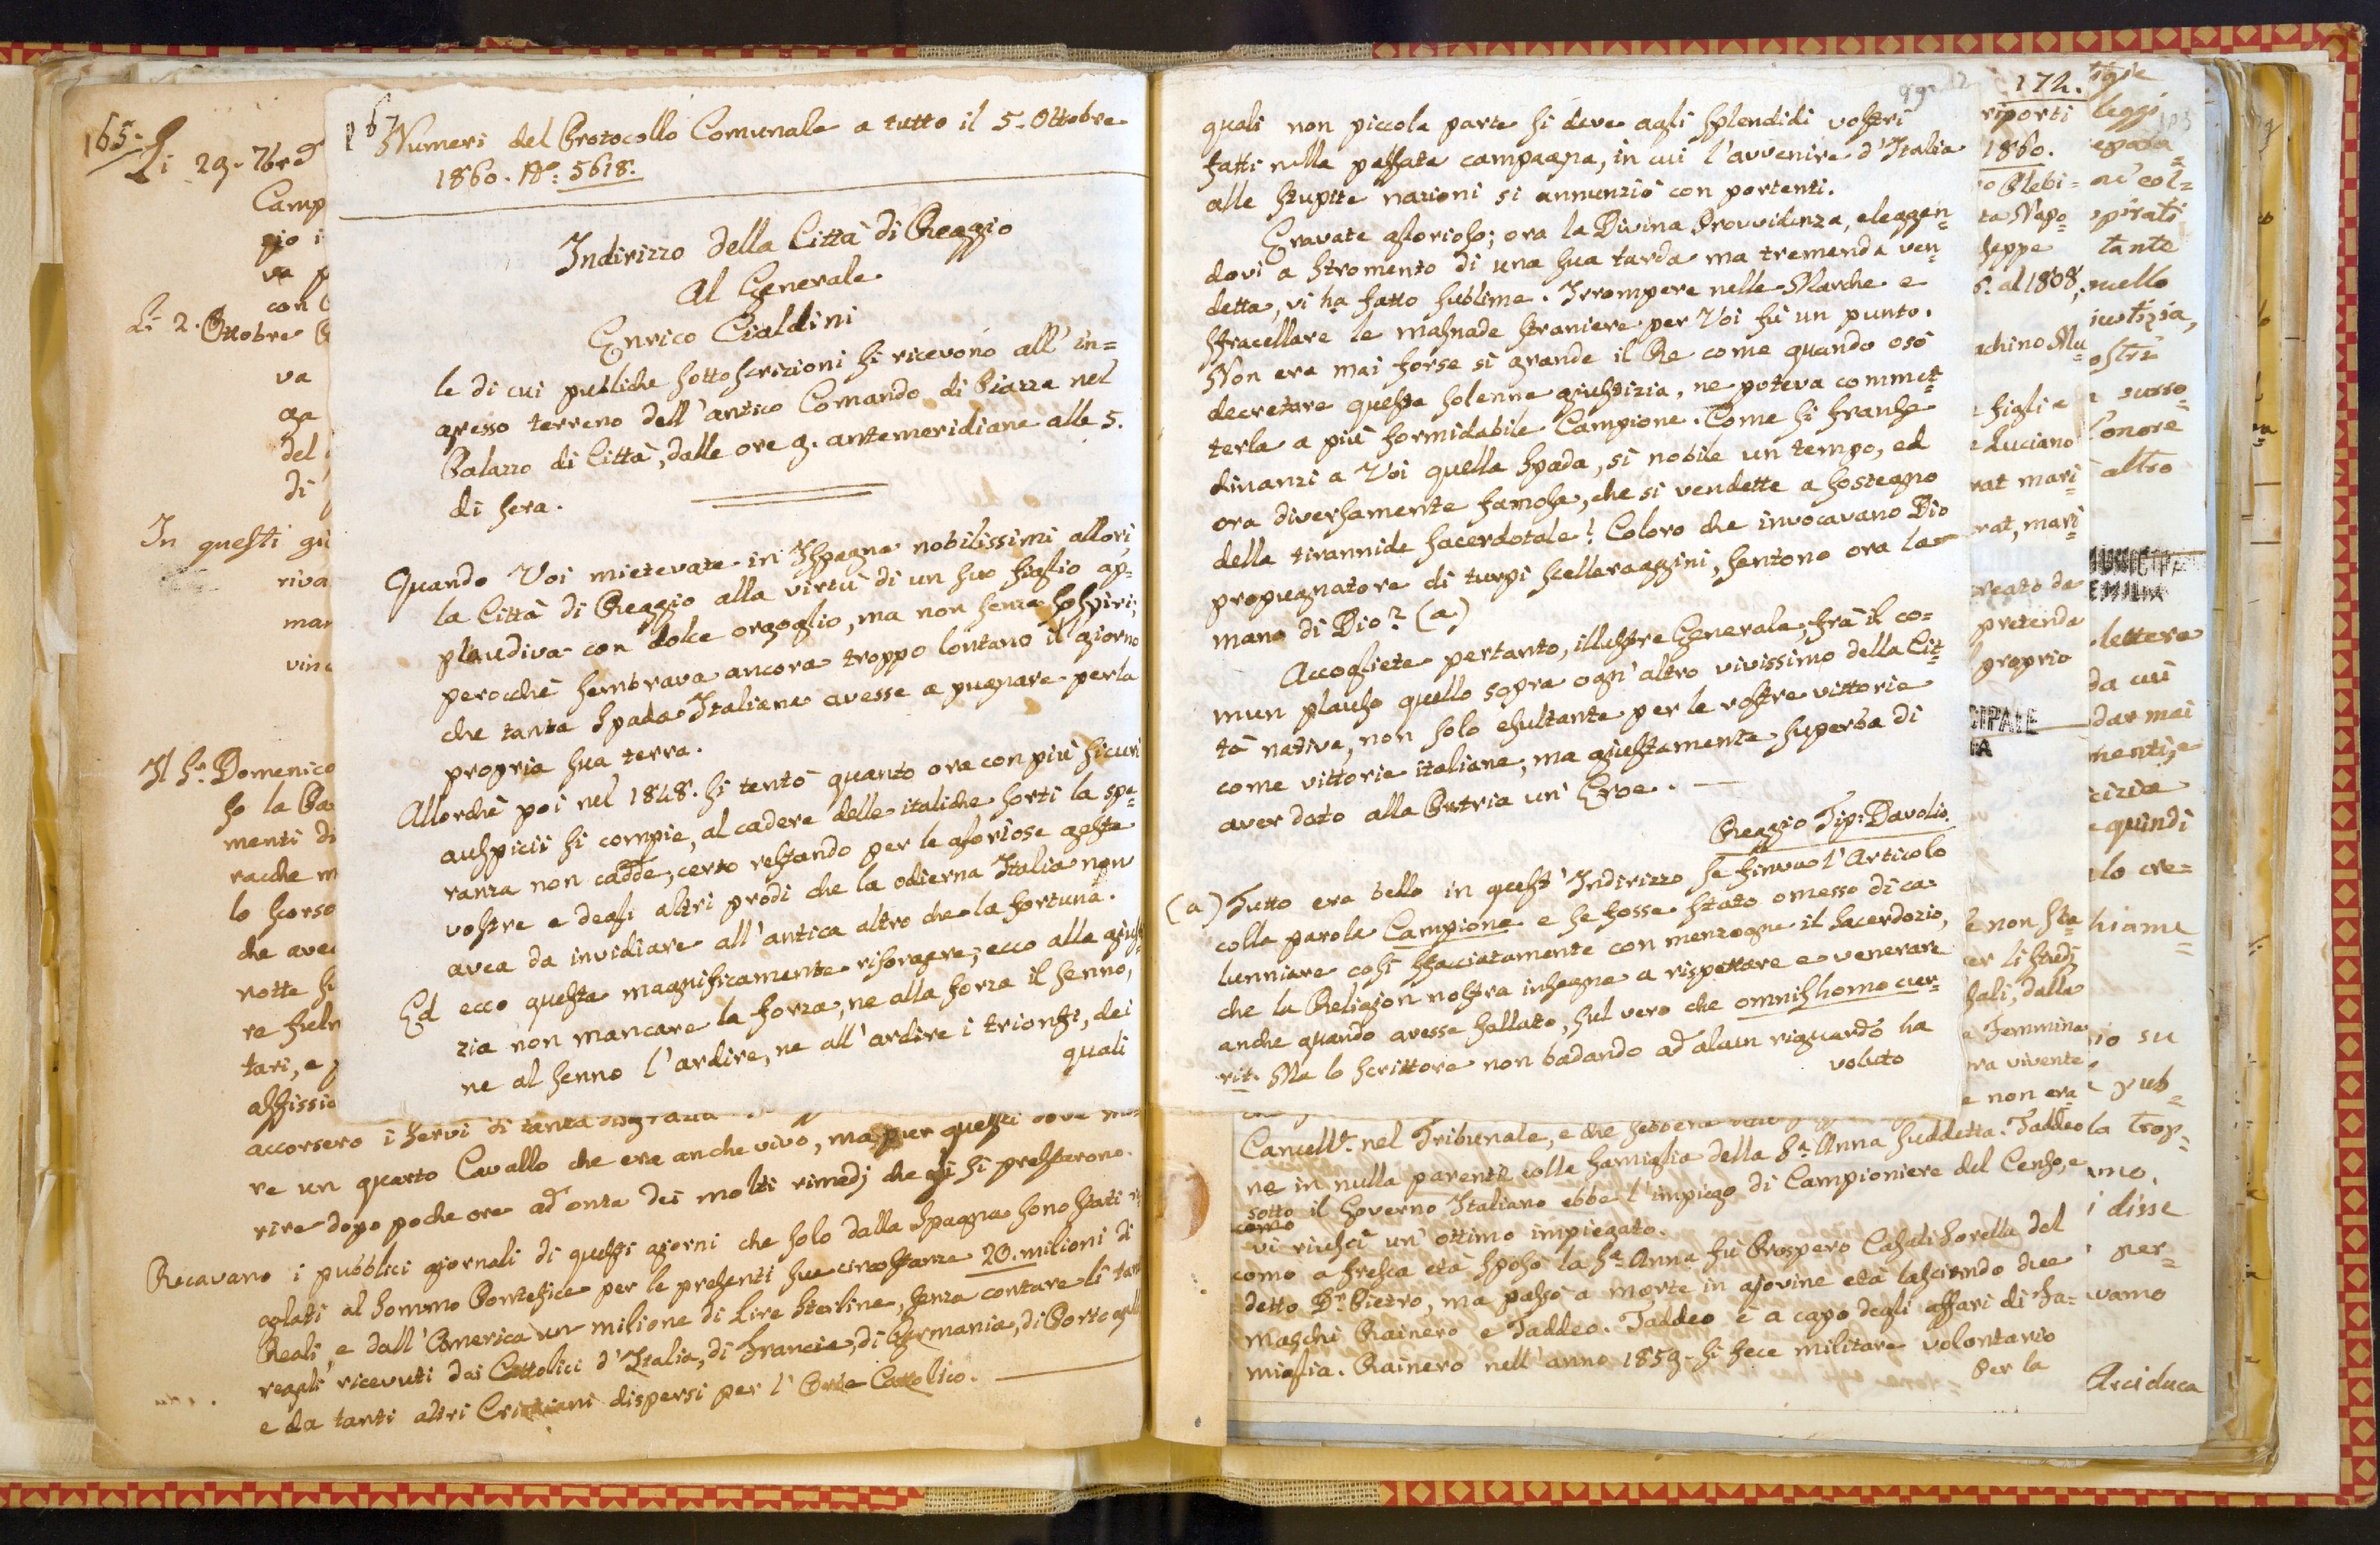 165.
Li 29. 7bre
Camp
gio i
va
con
Li 2. Ottobre
va
ga
del
di
In questi gi
riva
man
vinc
Il Sr. Domenico
so la
menti di
racche m
lo scorso
che avea
notte
re
tari, e
affissio
accorsero i servi di tanta disgrazia
re un quarto Cavallo che era anche vivo, ma pur questi dové mo=
rire dopo poche ore ad onta dei molti rimedj che gli si prestarono.
Recavano i pubblici giornali di questi giorni che solo dalla Spagna sono stati re
galati al Sommo Pontefice per le presenti sue circostanze 20. milioni di
Reali, e dall'America un milione di Lire Sterline, senza contare li tanti
regali ricevuti dai Cattolici d'Italia, di Francia, di Germania, di Portogallo
e da tanti altri Cristiani dispersi per l'Orbe Cattolico.
167
Numeri del Protocollo Comunale a tutto il 5. Ottobre
1860. No: 5618.
Indirizzo della Città di Reggio
Al Generale
Enrico Cialdini
le di cui pubbliche sottoscrizioni si ricevono all'in=
gresso terreno dell'antico Comando di Piazza nel
Palazzo di Città, dalle ore 9. antemeridiane alle 5.
di sera.
Quando Voi mietevate in Ispagna nobilissimi allori
la Città di Reggio alla virtù di un suo figlio ap=
plaudiva con dolce orgoglio, ma non senza sospiri;
perocchè sembrava ancora troppo lontano il giorno
che tanta Spada Italiana avesse a pugnare per la
propria sua terra.
Allorchè poi nel 1848. si tentò quanto ora con più sicuri
auspicii si compie, al cadere delle italiche sorti la spe=
ranza non cadde, certo restando per le gloriose geste
vostre e degli altri prodi che la odierna Italia non
avea da invidiare all'antica altro che la fortuna.
Ed ecco questa magnificamente risorgere; ecco alla giusti
zia non mancare la forza, ne alla forza il senno,
ne al senno l'ardire, ne all'ardire i trionfi, dei
quali
quali non piccola parte si deve agli splendidi vostri
fatti nella passata campagna, in cui l'avvenire d'Italia
alle stupite nazioni si annunziò con portenti.
Eravate glorioso; ora la Divina Provvidenza, eleggen=
dovi a stromento di una sua tarda ma tremenda ven=
detta, vi ha fatto sublime. Irrompere nelle Marche e
sfracellare le masnade straniere per Voi fù un punto.
Non era mai forse si grande il Re come quando osò
decretare questa solenne giustizia, ne poteva commet=
terla a più formidabile Campione. Come si franse
dinanzi a Voi quella spada, si nobile un tempo, ed
ora diversamente famosa, che si vendette a sostegno
della tirannide sacerdotale! Coloro che invocavano Dio
propugnatore di turpi scelleraggini, sentono ora la
mano di Dio? (a)
Accogliete pertanto, illustre Generale, frà il co=
mun plauso quello sopra ogn'altro vivissimo della Cit=
tà nativa, non solo esultante per le vostre vittorie
come vittorie italiane, ma giustamente superba di
aver dato alla Patria un' Eroe.
Reggio Tip: Davolio.
(a) Tutto era bello in quest'Indirizzo se finiva l'Articolo
colla parola Campione e se fosse stato omesso di ca=
lunniare così sfacciatamente con menzogne il sacerdozio,
che la Religion nostra insegna a rispettare e venerare
anche quando avesse fallato, sul vero che omnis homo cur=
rit. Ma lo scrittore non badando ad alcun riguardo ha
voluto
Cancell.e nel Tribunale, e che
ne in nulla parente colla famiglia della Sa. Anna suddetta. Taddeo
sotto il Governo Italiano ebbe l'impiego di Campioniere del Censo, e
como
vi riuscì un' ottimo impiegato.
como a fresca età sposò la Sa. Anna fù Prospero Casali sorella del
detto Dr. Pietro, ma passò a morte in giovine età lasciando due
maschi Rainero e Taddeo. Taddeo è a capo degli affari di fa=
miglia. Rainero nell'anno 1859. si fece militare volontario
Per la
172.
riporti
1860.
Plebi=
ta Napo=
seppe
al 1808,
achino Mu
figli e
Luciano
rat mari=
rat, mari=
creato da
pretende
proprio
CIPALE
e non sta
er li studj
sali, dalla
Femmina
ra vivente
e non era
leggi
col=
spirati
tante
quello
iustizia,
ostri
l'onore
altro
MUNICIPA
EMILIA
lettera
da cui
dar mai
menti, e
cizia
quindi
lo cre=
hiama=
io su
pub=
la trop=
amo,
disse
per=
vamo
Arciduca